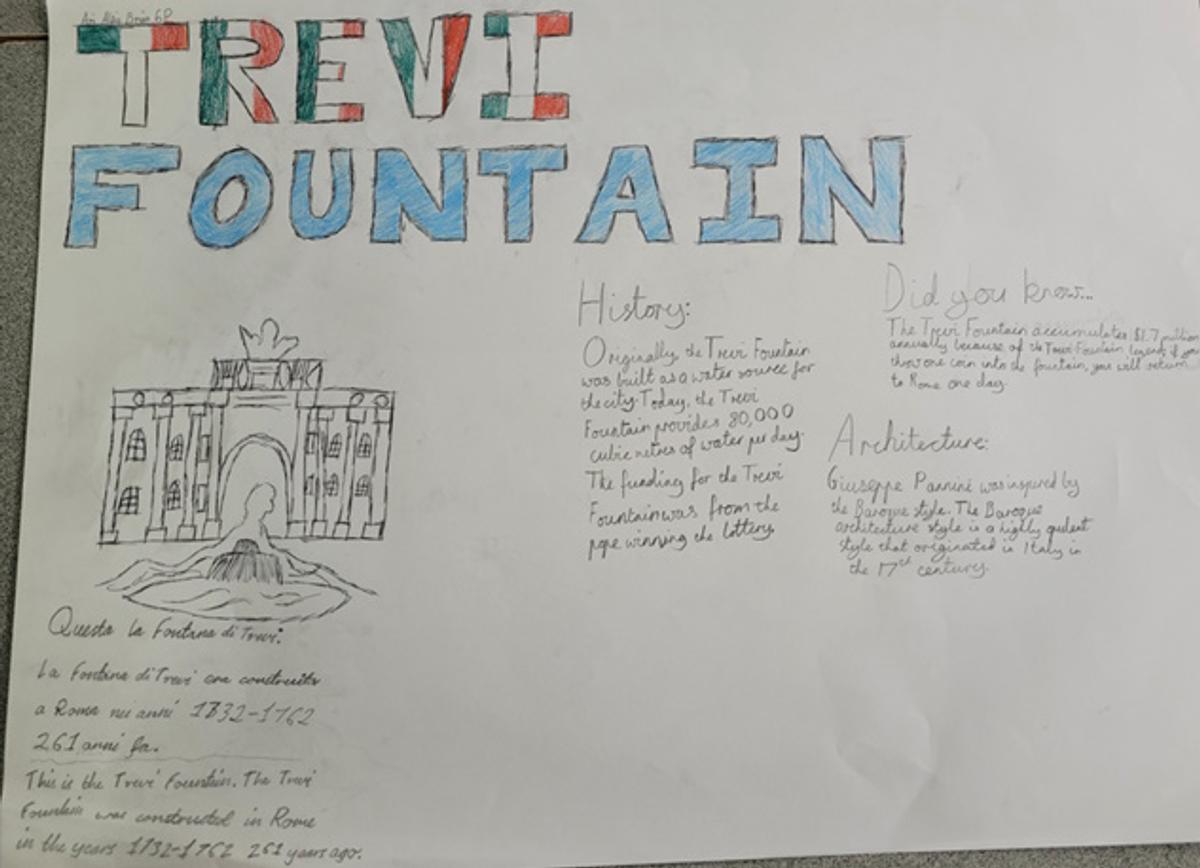 TREVI
FOUNTAIN
History:
Originally the Trevi Fountain
was built as a water source for
the city. Today, the Trevi
Fountain provides 80,000
cubic metres of water per day.
The funding for the Trevi
Fountain was from the
pope winning the lottery.
Did you know...
The Trevi Fountain accumulates $1.7 million
annually because of the Trevi Fountain legend if you
throw one coin into the fountain, you will return
to Rome one day.
Architecture:
Giuseppe Pannini was inspired by
the Baroque style. The Baroque
architecture style is a highly opulent
style that originated in Italy in
the 17th century.
Questa La Fontana di Trevi.
La Fontana di Trevi era construita
a Roma nei anni 1732-1762
261 anni fa.
This is the Trevi Fountain. The Trevi
Fountain was constructed in Rome
in the years 1732-1762 261 years ago.